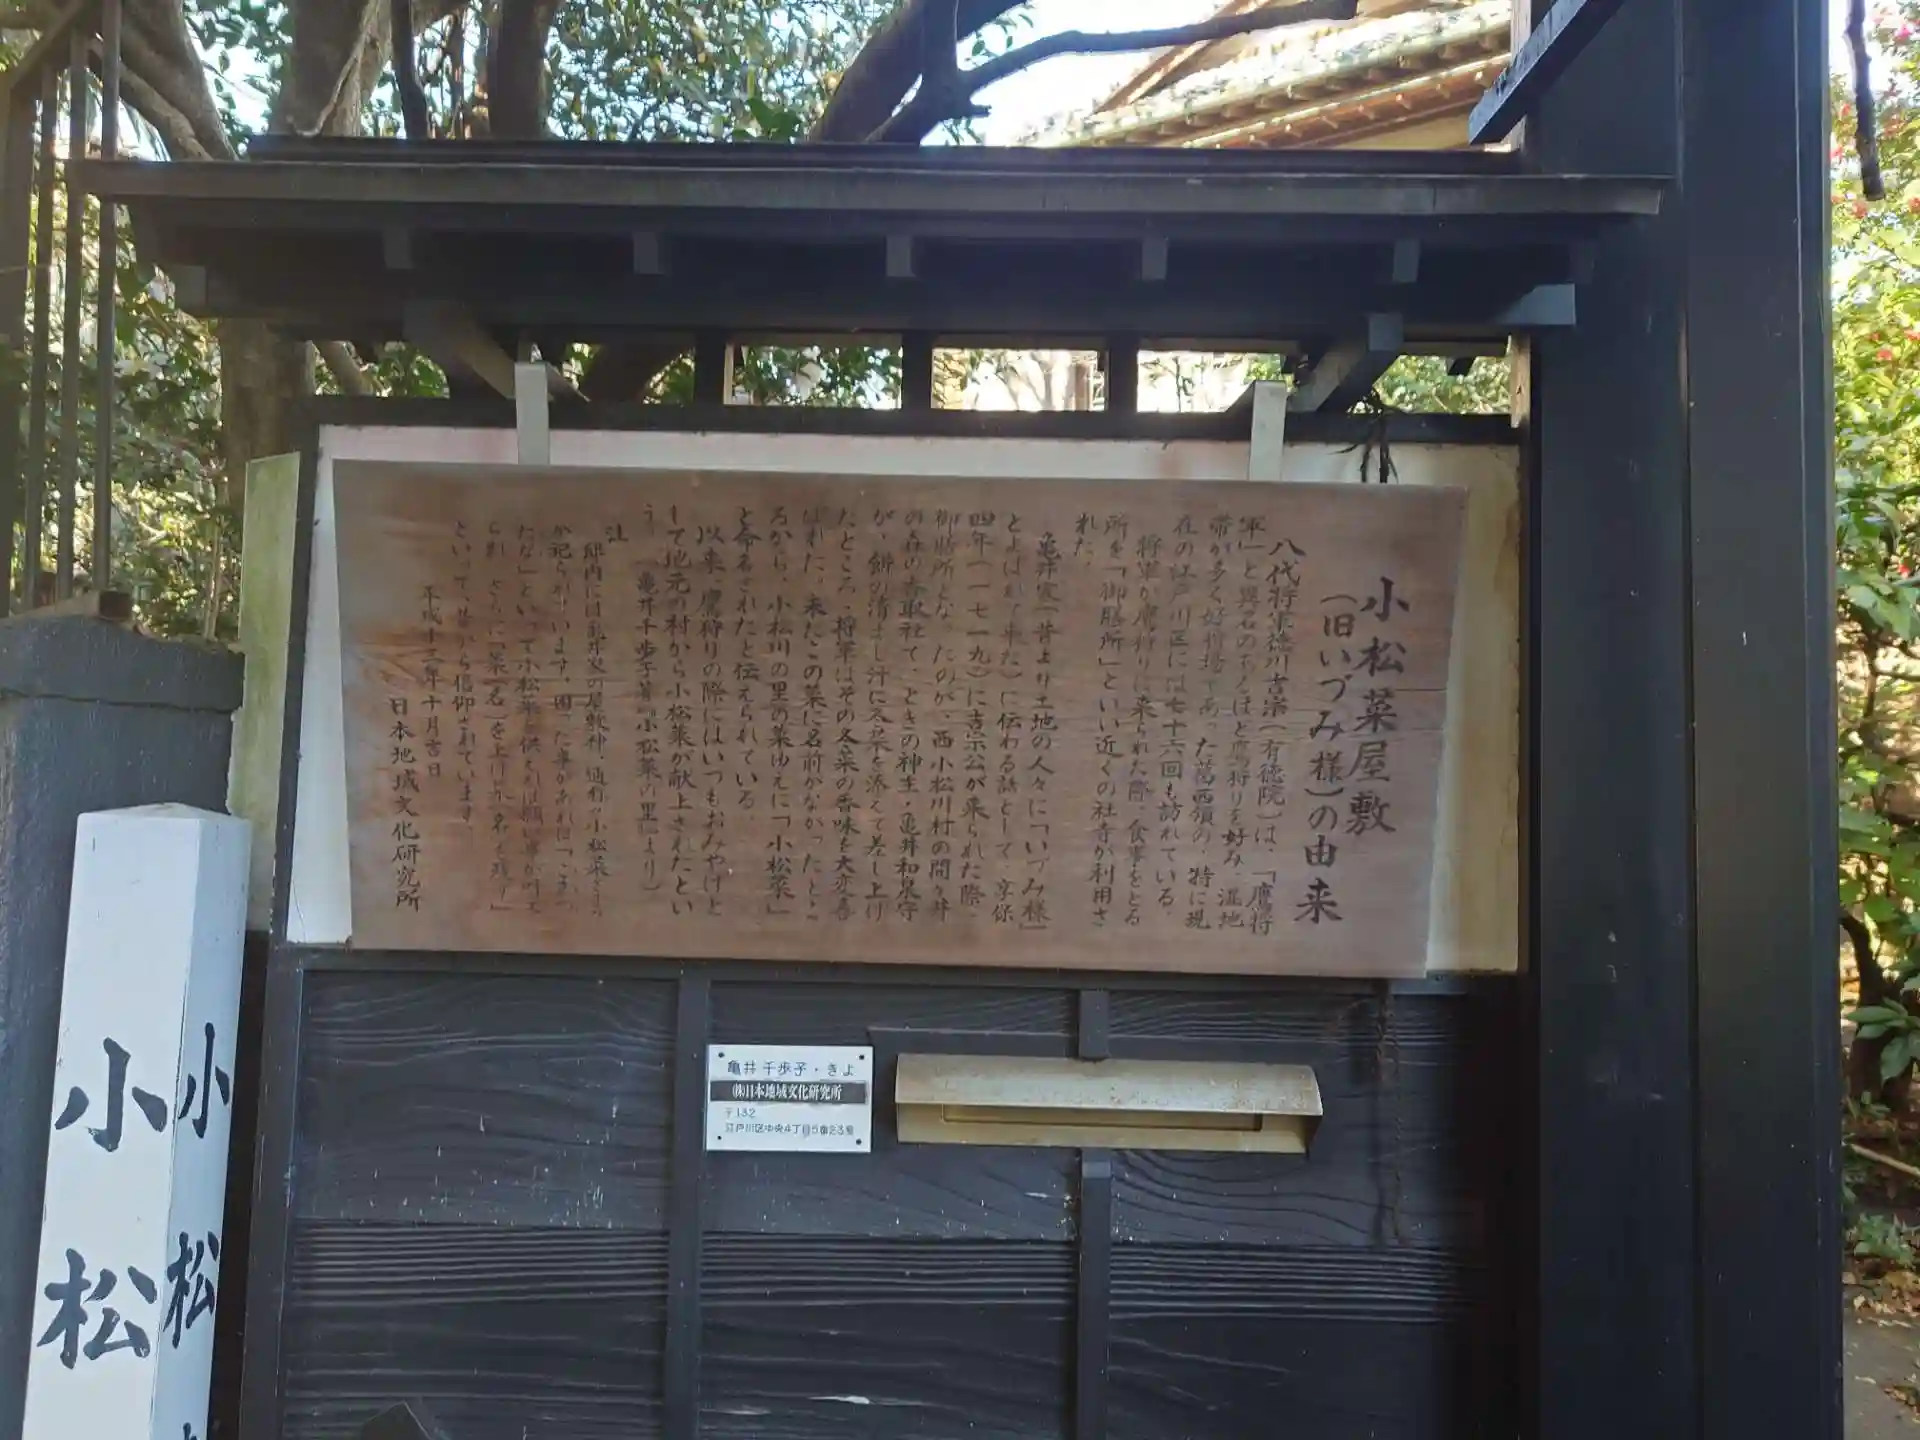 小松菜屋敷
(旧いづみ様)の由来
八代将軍徳川吉宗(有徳院)は、「鷹将
軍」と異名のあるほど鷹狩りを好み、湿地
帯が多く好猟場であった葛西領の、特に現
在の江戸川区には七十六回も訪れている。
将軍が鷹狩りに来られた際、食事をとる
所を「御膳所」といい近くの社寺が利用さ
れた。
亀井家(昔より土地の人々に「いづみ様」
とよばれて来た)に伝わる話として、享保
四年(一七一九)に吉宗公が来られた際、
御膳所となったのが、西小松川村の間々井
の森の香取社で、ときの神主・亀井和泉守
が、餅の清まし汁に冬菜を添えて差し上げ
たところ、将軍はその冬菜の香味を大変喜
ばれた。未だこの菜に名前がなかったとこ
ろから、小松川の里の菜ゆえに「小松菜」
と命名されたと伝えられている。
以来、鷹狩りの際にはいつもおみやげと
して地元の村から小松菜が献上されたとい
う。(亀井千歩子著『小松菜の里』より)
注
邸内には亀井家の屋敷神、通称
が祀られています。困った事があれば「こま
たな」といって小松菜を供えれば願い事が叶え
られ、さらに「菜(名)を上げ、名を残す」
といって、昔から信仰されています。
平成十三年十月吉日
日本地域文化研究所
亀井 千歩子・きよ
㈱日本地域文化研究所
〒132
江戸川区中央4丁目5番23号
小松
小松